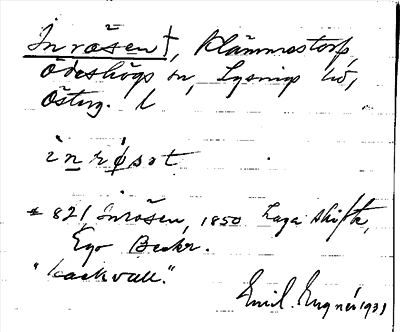 Inrösen †, Klämmestorp,
Ödeshögs sn, Lysings hd,
Österg. l
inrøsət
* 821 Inrösen, 1850 Laga skifte,
Ego Beskr.
"backvall."
Emil. Engnér 1931